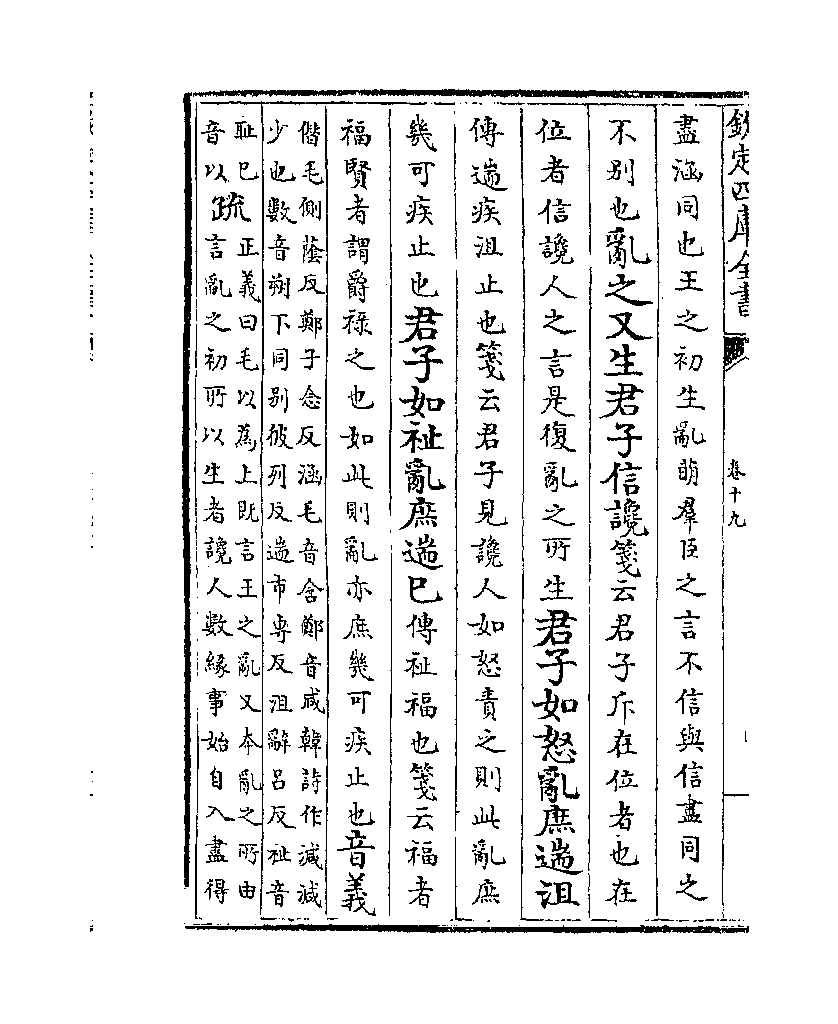 欽定四庫全書
卷十九
盡涵同也王之初生亂萌羣臣之言不信與信盡同之
不别也亂之又生君子信讒箋云君子斥在位者也在
位者信讒人之言是復亂之所生君子如怒亂庶遄沮
傳遄疾沮止也箋云君子見讒人如怒責之則此亂庶
幾可疾止也君子如祉亂庶遄巳傳祉福也箋云福者
福賢者謂爵禄之也如此則亂亦庶幾可疾止也音義
僭毛側蔭反鄭子念反涵毛音含鄭音咸韓詩作減減
少也數音朔下同别彼列反遄市專反沮辭吕反祉音
耻巳
音以
疏
正義曰毛以為上既言王之亂又本亂之所由
言亂之初所以生者讒人數緣事始自入盡得